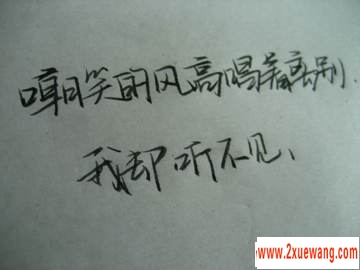 嘲笑的风高唱着离别.
我却听不见、
www.2xuewang.com